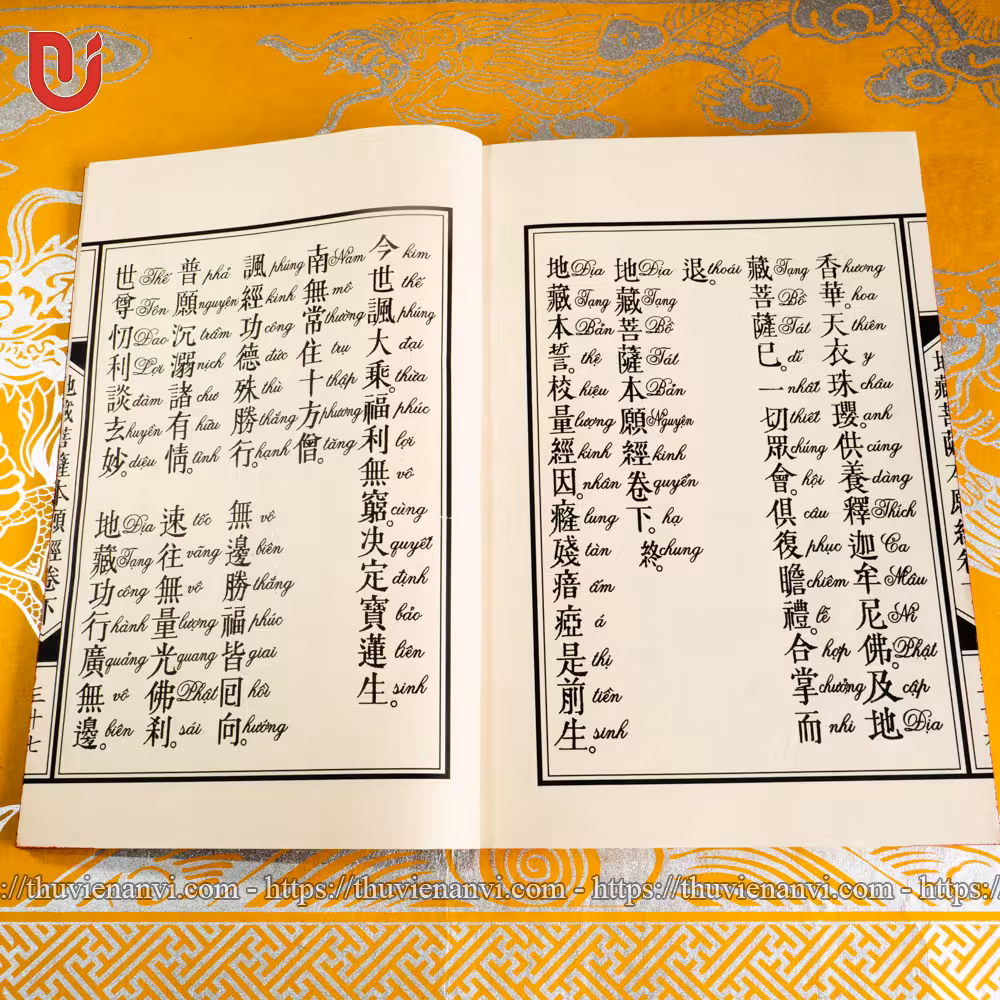 香華。天衣珠瓔。供養釋迦牟尼佛。及地
hương hoa thiên y châu anh cúng dàng Thích Ca Mâu Ni Phật cập Địa
藏菩薩已。一切眾會。俱復瞻禮。合掌而
Tạng Bồ Tát dĩ nhất thiết chúng hội câu phục chiêm lễ hợp chưởng nhi
退。
thoái
地藏菩薩本願經卷下。終
Địa Tạng Bồ Tát Bản Nguyện kinh quyển hạ chung
地藏本誓。校量經因。癃殘瘖瘂是前生。
Địa Tạng Bản thệ hiệu lượng kinh nhân lung tàn ấm á thị tiền sinh
今世諷大乘。福利無窮。決定寶蓮生。
kim thế phúng đại thừa phúc lợi vô cùng quyết định bảo liên sinh
南無常住十方僧。
Nam mô thường trụ thập phương tăng
諷經功德殊勝行。無邊勝福皆回向。
phúng kinh công đức thù thắng hạnh vô biên thắng phúc giai hồi hướng
普願沉溺諸有情。速往無量光佛剎。
phả nguyện trầm nịch chư hữu tình tốc vãng vô lượng quang Phật sái
世尊忉利談玄妙。地藏功行廣無邊。
Thế Tôn Đao Lợi đàm huyền diệu Địa Tạng công hành quảng vô biên
地藏菩薩本願經卷下
三十七
https://thuvienanvi.com - https://thuvienanvi.com - https://thuvienanvi.com - https://